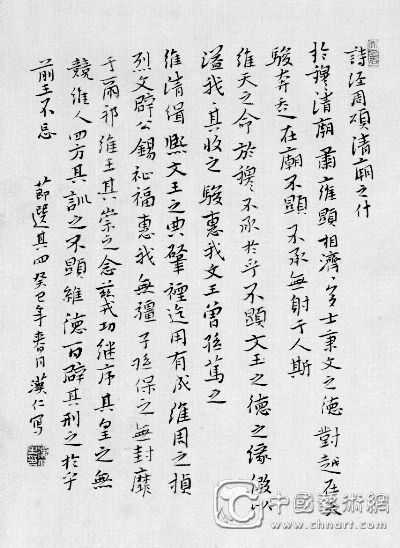 詩經周頌清廟之什
於穆清廟肅雝顯相濟濟多士秉文之德對越在天
駿奔走在廟不顯不承無射于人斯
維天之命於穆不承於乎不顯文王之德之假以
溢我其收之駿惠我文王曾孫篤之
維清緝熙文王之典肇禋迄用有成維周之禎
烈文辟公錫祉福惠我無疆子孫保之無封靡
于爾邦維王其崇之念茲戎功继序其皇之無
競維人四方其訓之不顯維德百辟其刑之於乎
前王不忘 節選其四癸巳年春月漢仁寫
中國藝術網
www.chnart.com